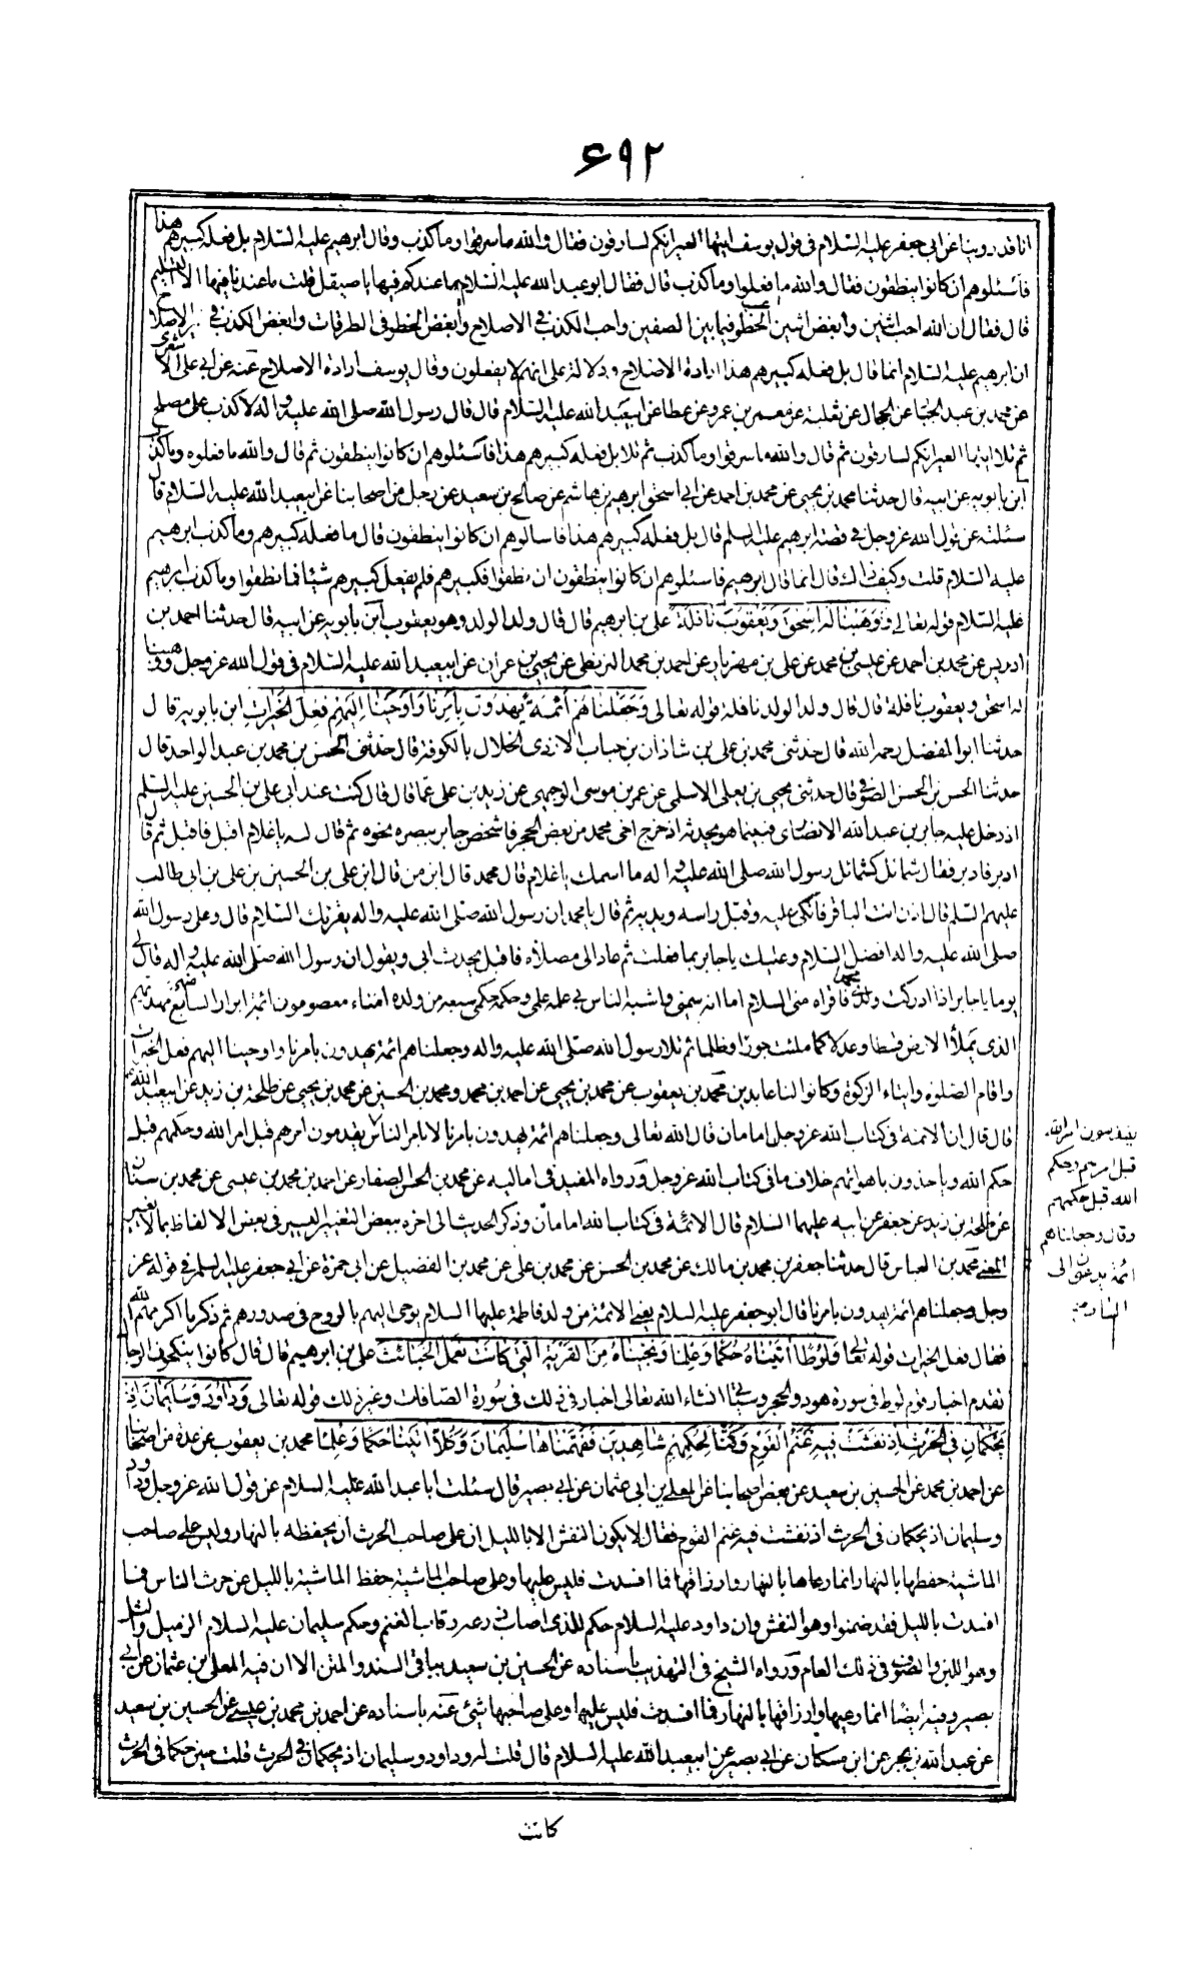 ۶۹۲
انا قد روينا عن ابي جعفر عليه السلام في قول يوسف ايتها العير انكم لسارقون فقال والله ما سرقوا وما كذب وقال ابرهيم عليه السلام بل فعله كبيرهم هذا
فاسئلوهم ان كانوا ينطقون فقال والله ما فعلوا وما كذب قال فقال ابو عبد الله عليه السلام ما عندكم فيها يا صيقل قلت ما عندنا فيها الا التسليم
قال فقال ان الله احب اثنين وابغض اثنين احب الخطر فيما بين الصفين واحب الكذب في الاصلاح وابغض الخطر في الطرقات وابغض الكذب في غير الاصلاح
ان ابرهيم عليه السلام انما قال بل فعله كبيرهم هذا ارادة الاصلاح ودلالة على انهم لا يفعلون وقال يوسف ارادة الاصلاح عنه عن ابي علي الاشعري
عن محمد بن عبد الجبار عن الحجال عن ثعلبة عن معمر بن عمرو عن عطا عن ابيعبد الله عليه السلام قال قال رسول الله صلى الله عليه واله لا كذب على مصلح
ثم تلا ايتها العير انكم لسارقون ثم قال والله ما سرقوا وما كذب ثم تلا بل فعله كبيرهم هذا فاسئلوهم ان كانوا ينطقون ثم قال والله ما فعلوه وما كذب
ابن بابويه عن ابيه قال حدثنا محمد بن يحيى عن محمد بن احمد عن ابي اسحق ابرهيم بن هاشم عن صالح بن سعيد عن رجل من اصحابنا عن ابيعبد الله عليه السلام قال
سئلته عن قول الله عز وجل في قصة ابرهيم عليه السلم قال بل فعله كبيرهم هذا فاسالوهم ان كانوا ينطقون قال ما فعله كبيرهم وما كذب ابرهيم
عليه السلام قلت وكيف ذلك قال انما قال ابرهيم فاسئلوهم ان كانوا ينطقون ان نطقوا فكبيرهم فلم يفعل كبيرهم شيئا فما نطقوا وما كذب ابرهيم
عليه السلام قوله تعالى ووهبنا له اسحق ويعقوب نافلة علي بن ابرهيم قال قال ولد الولد وهو يعقوب ابن بابويه عن ابيه قال حدثنا احمد بن
ادريس عن محمد بن احمد عن عيسى بن محمد عن علي بن مهزيار عن احمد بن محمد البزنطي عن يحيى بن عمران عن ابيعبد الله عليه السلام في قول الله عز وجل ووهبنا
له اسحق ويعقوب نافلة قال قال ولد الولد نافلة قوله تعالى وجعلناهم أئمة يهدون بامرنا واوحينا اليهم فعل الخيرات ابن بابويه قال
حدثنا ابو المفضل رحمه الله قال حدثني محمد بن علي بن شاذان بن حباب الازدي الخلال بالكوفة قال حدثني الحسن بن محمد بن عبد الواحد قال
حدثنا الحسن بن الحسن الصوفي قال حدثني يحيى بن يعلى الاسلمي عن عمر بن موسى الوجيهي عن زيد بن علي قال كنت عند ابي علي بن الحسين عليه السلم
اذ دخل عليه جابر بن عبد الله الانصاري فبينما هو يحدثه اذ خرج اخي محمد من بعض الحجر فاشخص جابر ببصره نحوه ثم قال له يا غلام اقبل فاقبل ثم قال
ادبر فادبر فقال شمائل كشمائل رسول الله صلى الله عليه واله ما اسمك يا غلام قال محمد قال ابن من قال ابن علي بن الحسين بن علي بن ابي طالب
عليهم السلم قال اذن انت الباقر فانكى عليه وقبل راسه ويديه ثم قال يا محمد ان رسول الله صلى الله عليه واله يقرئك السلام قال وعلى رسول الله
صلى الله عليه واله افضل السلام وعليك يا جابر بما فعلت ثم عاد الى مصلاه فاقبل يحدث ابي ويقول ان رسول الله صلى الله عليه واله قال لي
يوما يا جابر اذا ادركت ولدي محمد فاقراه مني السلام اما انه سميي واشبه الناس بي علمه علمي وحكمه حكمي سبعة من ولده امناء معصومون ائمة ابرار السابع مهديهم
الذي يملأ الارض قسطا وعدلا كما ملئت جورا وظلما ثم تلا رسول الله صلى الله عليه واله وجعلناهم ائمة يهدون بامرنا واوحينا اليهم فعل الخيرات
واقام الصلوة وايتاء الزكوة وكانوا لنا عابدين محمد بن يعقوب عن محمد بن يحيى عن احمد بن محمد ومحمد بن الحسين عن محمد بن يحيى عن طلحة بن زيد عن ابيعبد الله
قال قال ان الائمة في كتاب الله عز وجل امامان قال الله تعالى وجعلناهم ائمة يهدون بامرنا لا بامر الناس يقدمون امرهم قبل امر الله وحكمهم قبل
حكم الله وياخذون باهوائهم خلاف ما في كتاب الله عز وجل ورواه المفيد في اماليه عن محمد بن الحسن الصفار عن احمد بن محمد بن عيسى عن محمد بن سنان
عن طلحة بن زيد عن جعفر عن ابيه عليهما السلام قال الائمة في كتاب الله امامان وذكر الحديث الى اخره ببعض التغيير اليسير في بعض الالفاظ بما لا يغير
المعنى محمد بن العباس قال حدثنا جعفر بن محمد بن مالك عن محمد بن الحسن عن محمد بن علي عن محمد بن الفضيل عن ابي حمزة عن ابي جعفر عليه السلم في قوله عز
وجل وجعلناهم ائمة يهدون بامرنا قال ابو جعفر عليه السلام يعني الائمة من ولد فاطمة عليها السلام يوحى اليهم بالروح في صدورهم ثم ذكر ما اكرمهم الله
فقال فعل الخيرات قوله تعالى ولوطا آتيناه حكما وعلما ونجيناه من القرية التي كانت تعمل الخبائث علي بن ابرهيم قال قال كانوا ينكحون الرجال
تقدم اخبار قوم لوط في سورة هود والحجر وسياتي انشاء الله تعالى اخبار في ذلك في سورة الصافات وغير ذلك قوله تعالى وداود وسليمان اذ
يحكمان في الحرث اذ نفشت فيه غنم القوم وكنا لحكمهم شاهدين ففهمناها سليمان وكلا اتينا حكما وعلما محمد بن يعقوب عن عدة من اصحابنا
عن احمد بن محمد عن الحسين بن سعيد عن بعض اصحابنا عن المعلى بن ابي عثمان عن ابي بصير قال سئلت ابا عبد الله عليه السلام عن قول الله عز وجل وداود
وسليمان اذ يحكمان في الحرث اذ نفشت فيه غنم القوم فقال لا يكون النفش الا بالليل ان على صاحب الحرث ان يحفظه بالنهار وليس على صاحب
الماشية حفظها بالنهار انما رعاها بالنهار وارزاقها فما افسدت فليس عليها وعلى صاحب الماشية حفظ الماشية بالليل عن حرث الناس فما
افسدت بالليل فقد ضمنوا وهو النفش وان داود عليه السلام حكم للذي اصاب زرعه رقاب الغنم وحكم سليمان عليه السلام الرسل والثلة
وهو اللبن والصوف في ذلك العام ورواه الشيخ في التهذيب باسناده عن الحسين بن سعيد بباقي السند والمتن الا ان فيه المعلى بن عثمان عن ابي
بصير وفيه ايضا انما رعيها وارزاقها بالنهار فما افسدت فليس عليها وعلى صاحبها شئ عنه باسناده عن احمد بن محمد بن عيسى عن الحسين بن سعيد
عن عبد الله بن بحر عن ابن مسكان عن ابي بصير عن ابيعبد الله عليه السلام قال قلت له وداود وسليمان اذ يحكمان في الحرث قلت حين حكما في الحرث
يقدمون امر الله
قبل امرهم وحكم
الله قبل حكمهم
وقال وجعلناهم
ائمة يدعون الى
النار
كانت